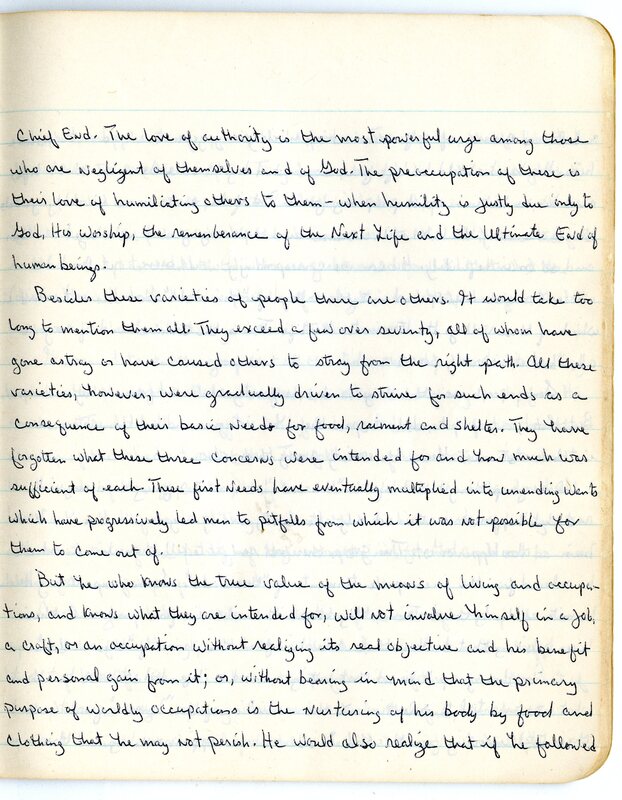 Chief End. The love of authority is the most powerful urge among those
who are negligent of themselves and of God. The preoccupation of these is
their love of humiliating others to them – when humility is justly due only to
God, His Worship, the rememberance of the Next Life and the Ultimate End of
human beings.
Besides these varieties of people there are others. It would take too
long to mention them all. They exceed a few over seventy, all of whom have
gone astray or have caused others to stray from the right path. All these
varieties, however, were gradually driven to strive for such ends as a
consequence of their basic needs for food, raiment and shelter. They have
forgotten what these three concerns were intended for and how much was
sufficient of each. These first needs have eventually multiplied into unending wants
which have progressively led men to pitfalls from which it was not possible for
them to come out of.
But he who knows the true value of the means of living and occupa-
tions, and knows what they are intended for, will not involve himself in a job,
a craft, or an occupation without realizing its real objective and his benefit
and personal gain from it; or, without bearing in mind that the primary
purpose of worldly occupations is the nurturing of his body by food and
clothing that he may not perish. He would also realize that if he followed